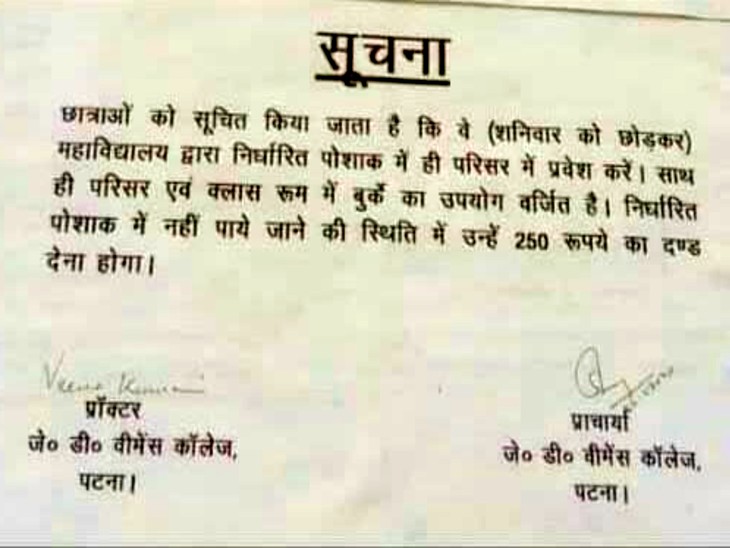 सूचना
छात्राओं को सूचित किया जाता है कि वे (शनिवार को छोड़कर)
महाविद्यालय द्वारा निर्धारित पोशाक में ही परिसर में प्रवेश करें। साथ
ही परिसर एवं क्लास रूम में बुर्के का उपयोग वर्जित है। निर्धारित
पोशाक में नहीं पाये जाने की स्थिति में उन्हें 250 रूपये का दण्ड
देना होगा।
Veena Kumari
प्रॉक्टर
जे० डी० वीमेंस कॉलेज,
पटना।
प्राचार्या
जे० डी० वीमेंस कॉलेज,
पटना।